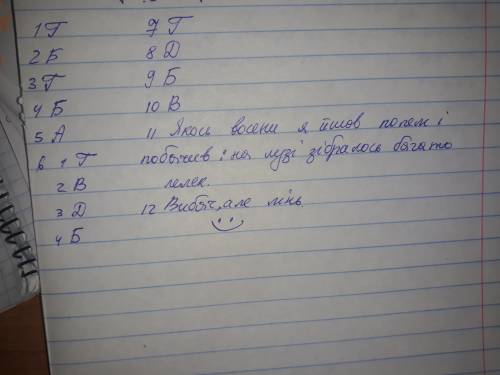 1 Г
2 Б
3 Г
4 Б
5 А
6 1 Г
2 В
3 Д
4 Б
7 Г
8 Д
9 Б
10 В
11 Якось восени я йшов полем і
побачив: на лузі зібралось багато
лелек.
12 Вибач, але лінь